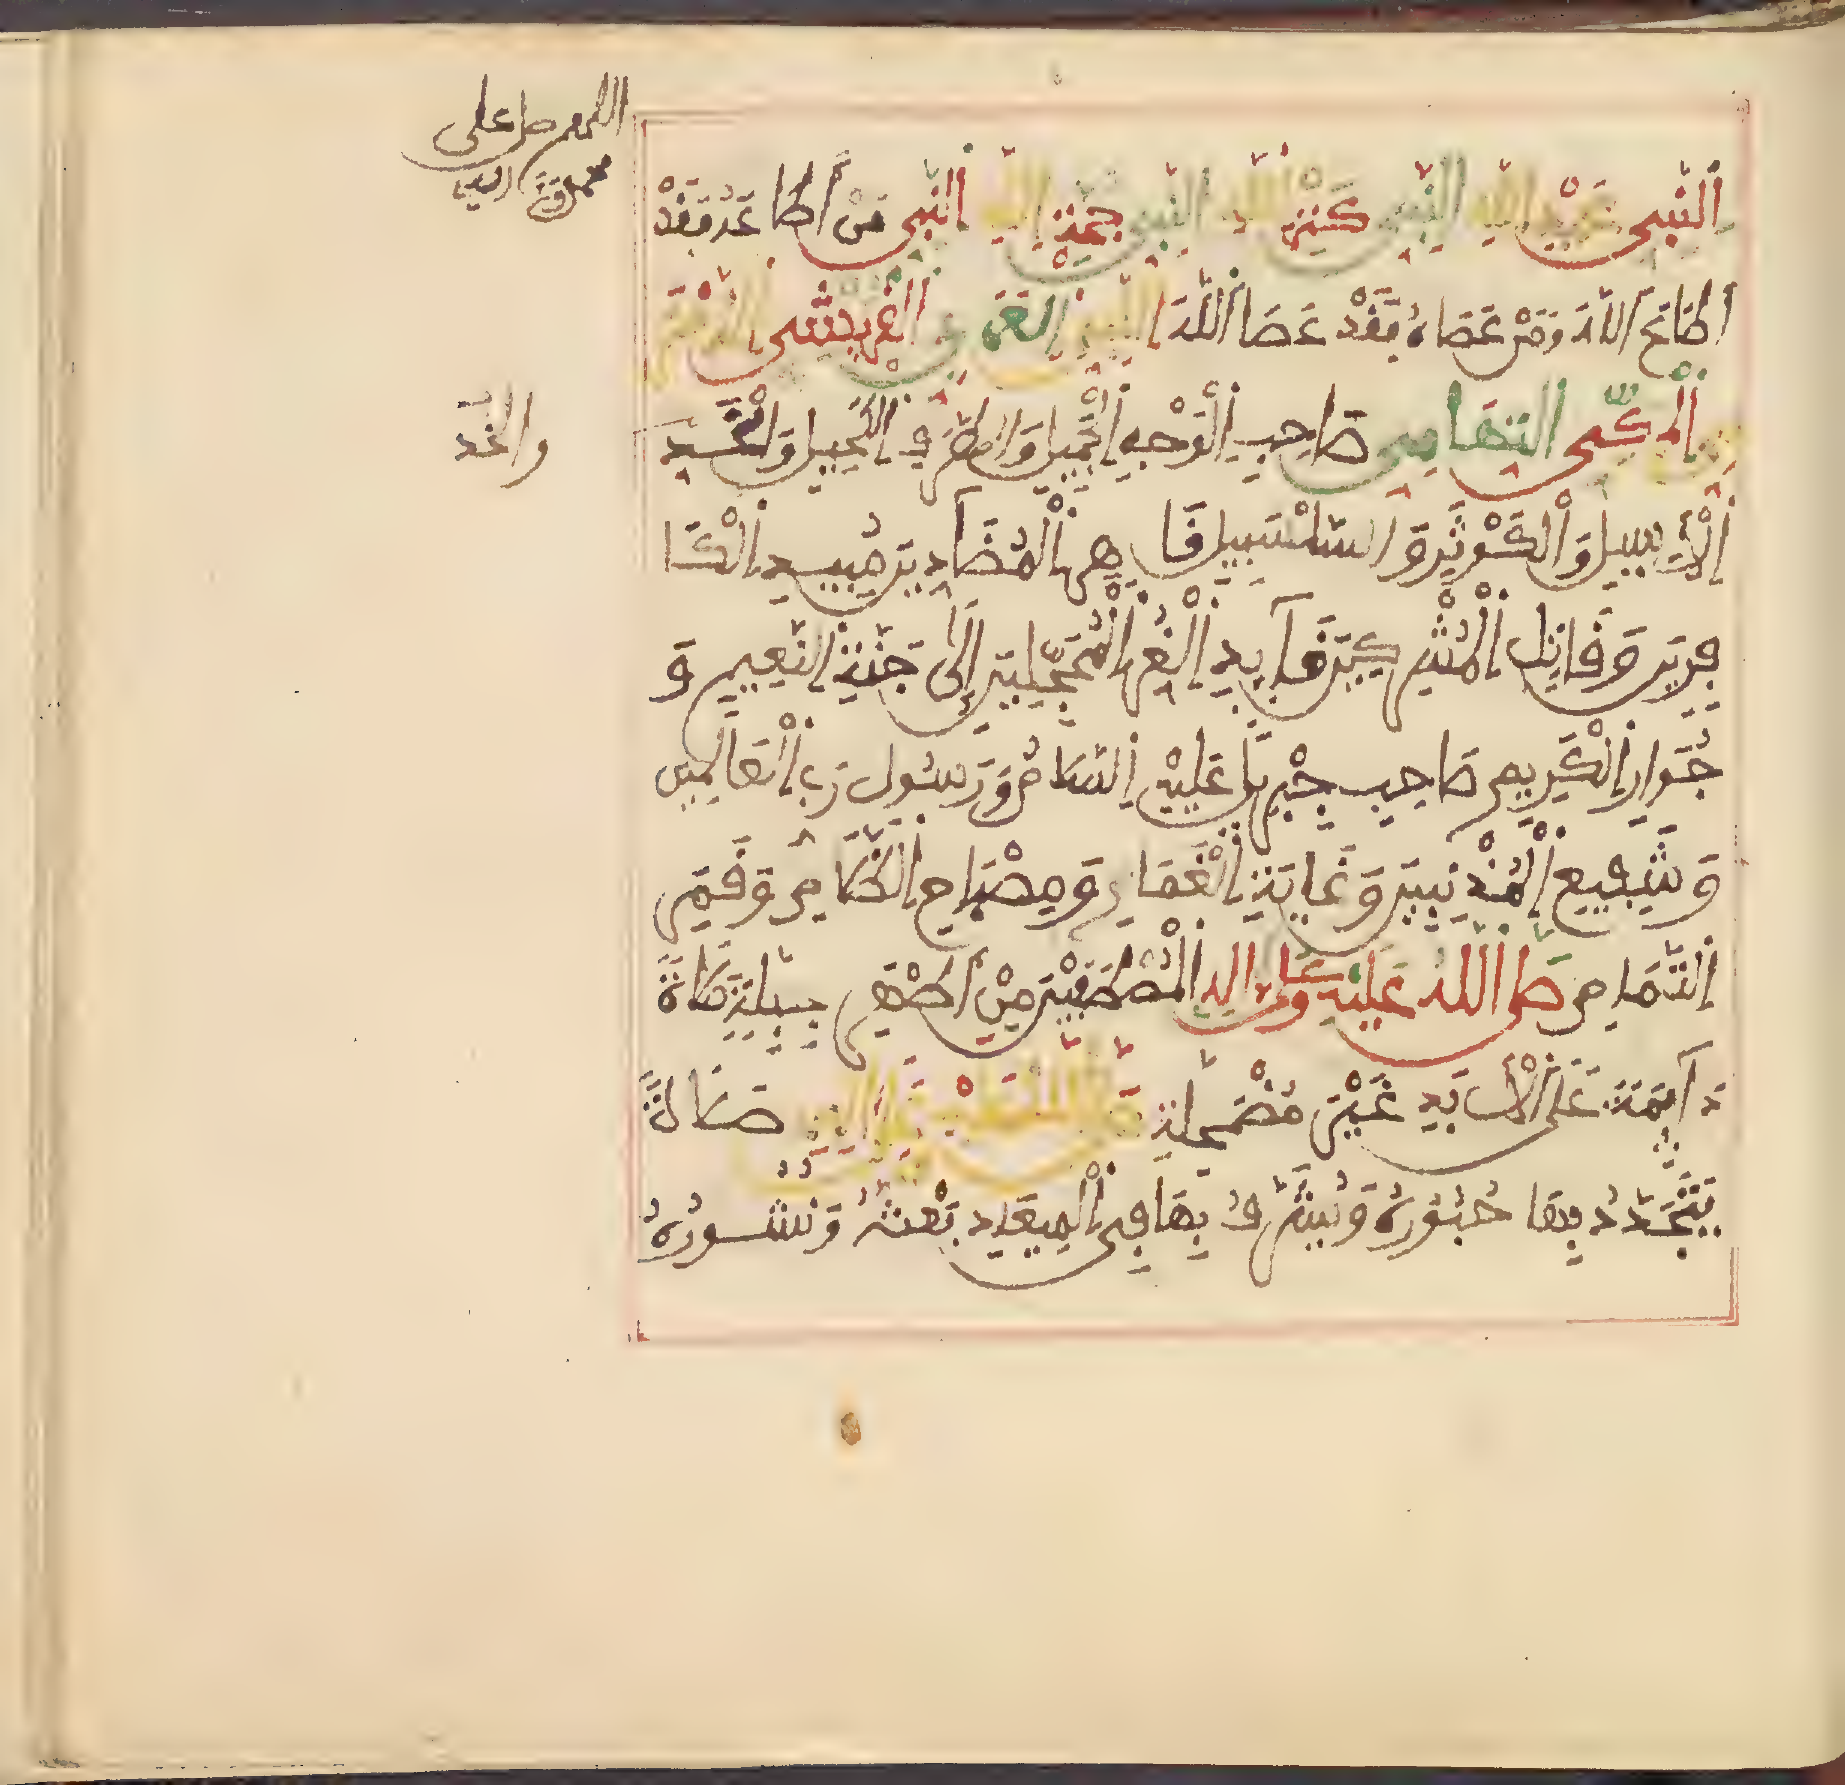 اللهم صل على
محمد
والخد
اَلنَّبِيِّ عَيْنِ اللهِ النَّبِيِّ كَنْزِ اللهِ النَّبِيِّ حُجَّةِ اللهِ اَلنَّبِيِّ مَنْ أَطَاعَهُ فَقَدْ
اَطَاعَ اَللَّهَ وَمَنْ عَصَاهُ فَقَدْ عَصَا اَللَّهَ النَّبِيِّ الْعَرَبِيِّ الْقُرَيْشِيِّ الزَّمْزَ
مِيِّ اِلْمَكِّيِّ التِّهَامِيِّ صَاحِبِ اِلْوَجْهِ اِلْجَمِيلِ وَالطَّرْفِ اِلْكَحِيلِ وَالْخَدِّ
اِلْأَسِيلِ وَالْكَوْثَرِ وَالسَّلْسَبِيلِ قَاهِرِ اِلْمُضَآدِّينَ مُبِيدِ اِلْكَا
فِرِينَ وَقَاتِلِ اِلْمُشْرِكِينَ قَآئِدِ اِلْغُرِّ اِلْمُحَجَّلِينَ إِلَى جَنَّةِ اِلنَّعِيمِ وَ
جُوَارِ اِلْكَرِيمِ صَاحِبِ جِبْرِيلَ عَلَيْهِ اِلسَّلَامُ وَرَسُولِ رَبِّ اِلْعَالَمِينَ
وَشَفِيعِ اِلْمُذْنِبِينَ وَغَايَةِ اِلْغَمَامِ وَمِصْبَاحِ اِلظَّلَامِ وَقَمَرِ
اِلتَّمَامِ صَلَّى اللهُ عَلَيْهِ وَعَلَى ءَالِهِ اِلْمُصْطَفَيْنَ مِنْ أَطْهَرِ جِبِلَّةٍ صَلَاةً
دَآئِمَةً عَلَى اَلْأَبَدِ غَيْرَ مُضْمَحِلَّةٍ صَلَّى اللهُ عَلَيْهِ وَعَلَى ءَالِهِ صَلَاةً
يَتَجَدَّدُ بِهَا حُبُورُهُ وَيُشَرَّفُ بِهَا فِي اِلْمِيعَادِ بَعْثُهُ وَنُشُورُهُ